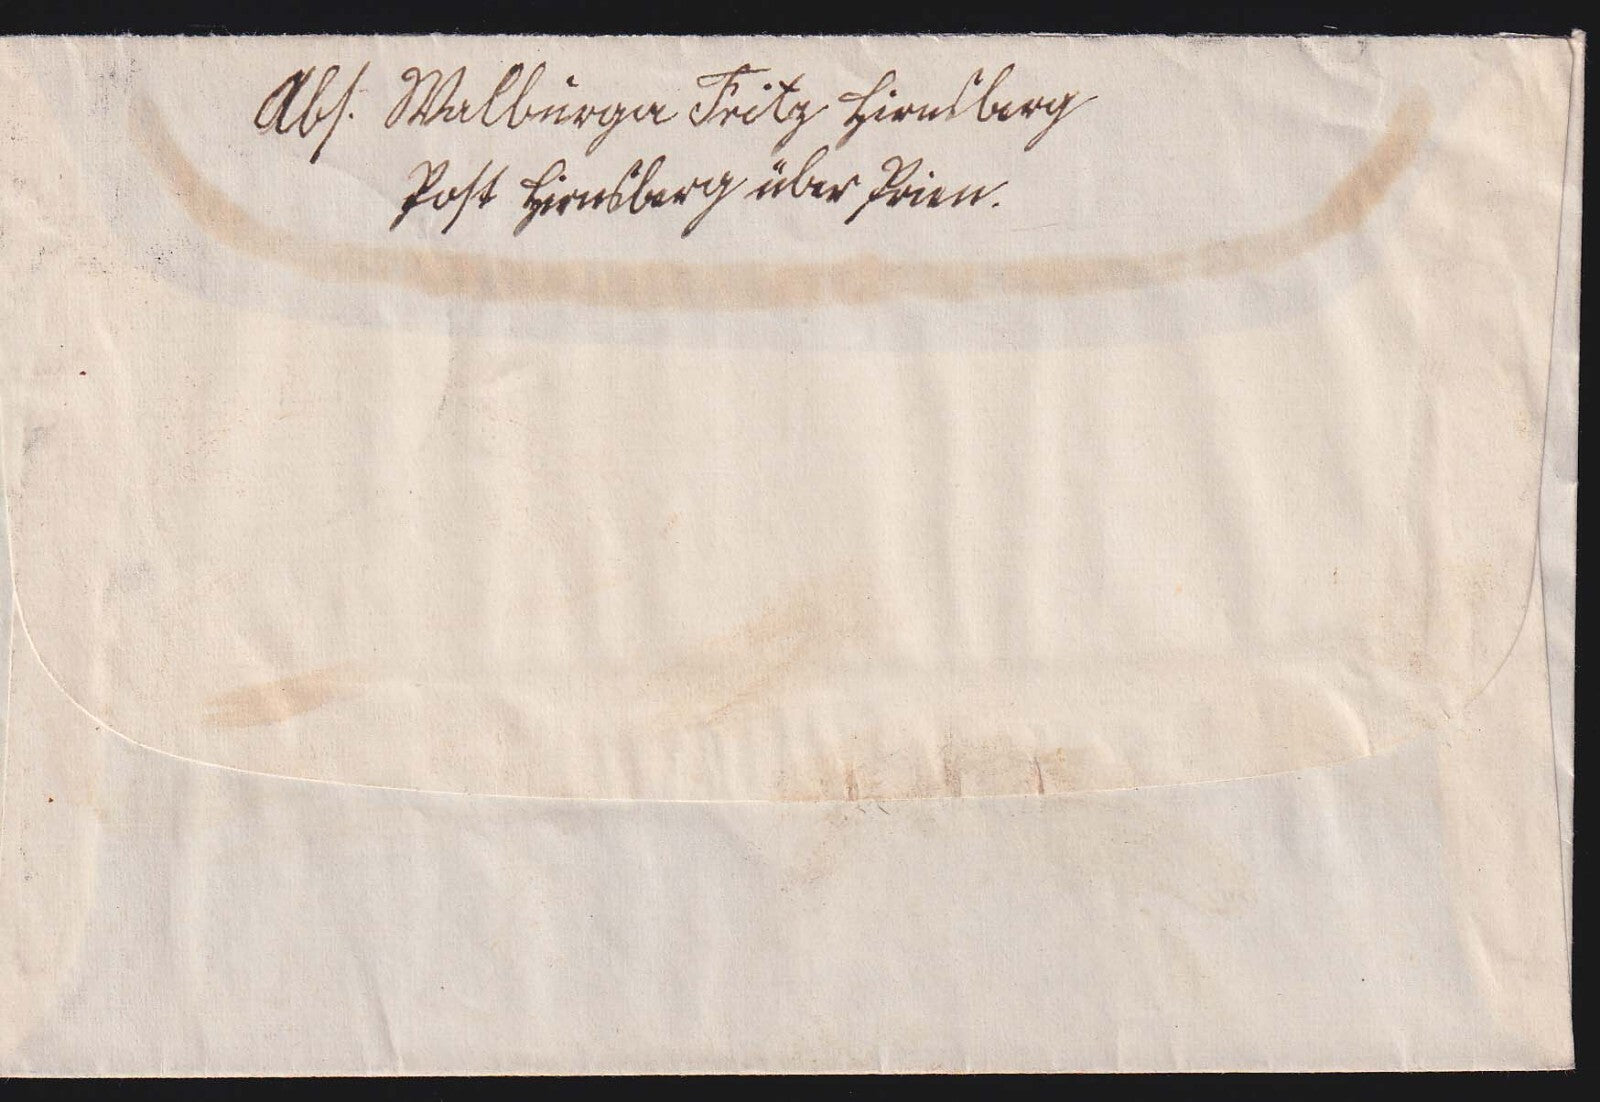 Abs. Walburga Fritz Hirnsberg
Post Hirnsberg über Prien.